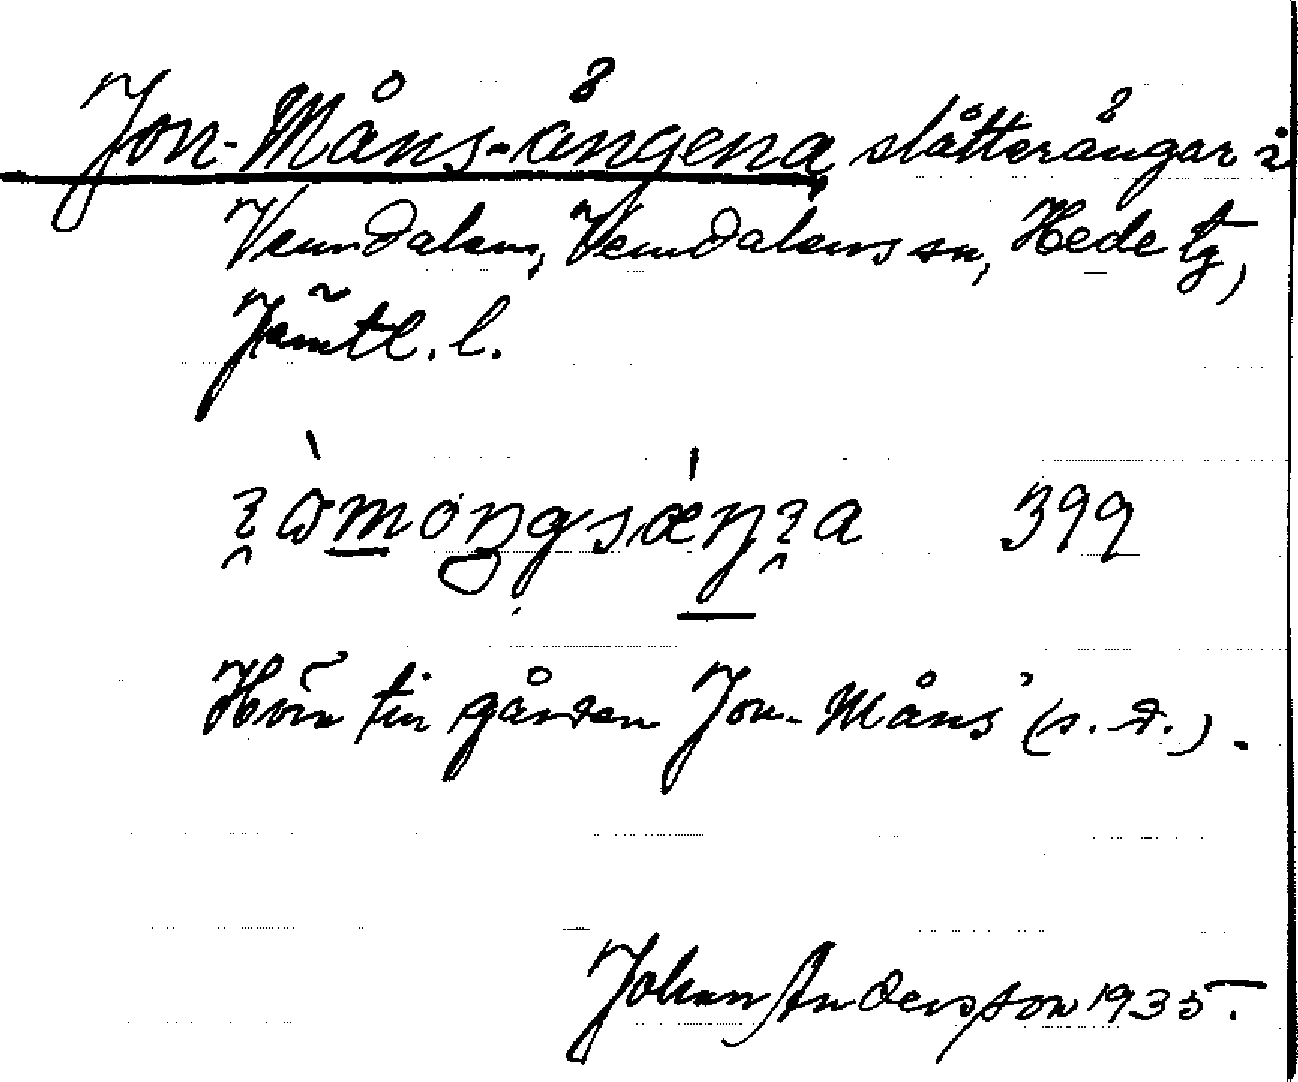 Jon-Måns-ängena slåtterängar i
Vemdalen, Vemdalens sn, Hede tg,
Jämtl. l.
399
Hörn till gården Jon-Måns' (s. d.).
Johan Andersson 1935.